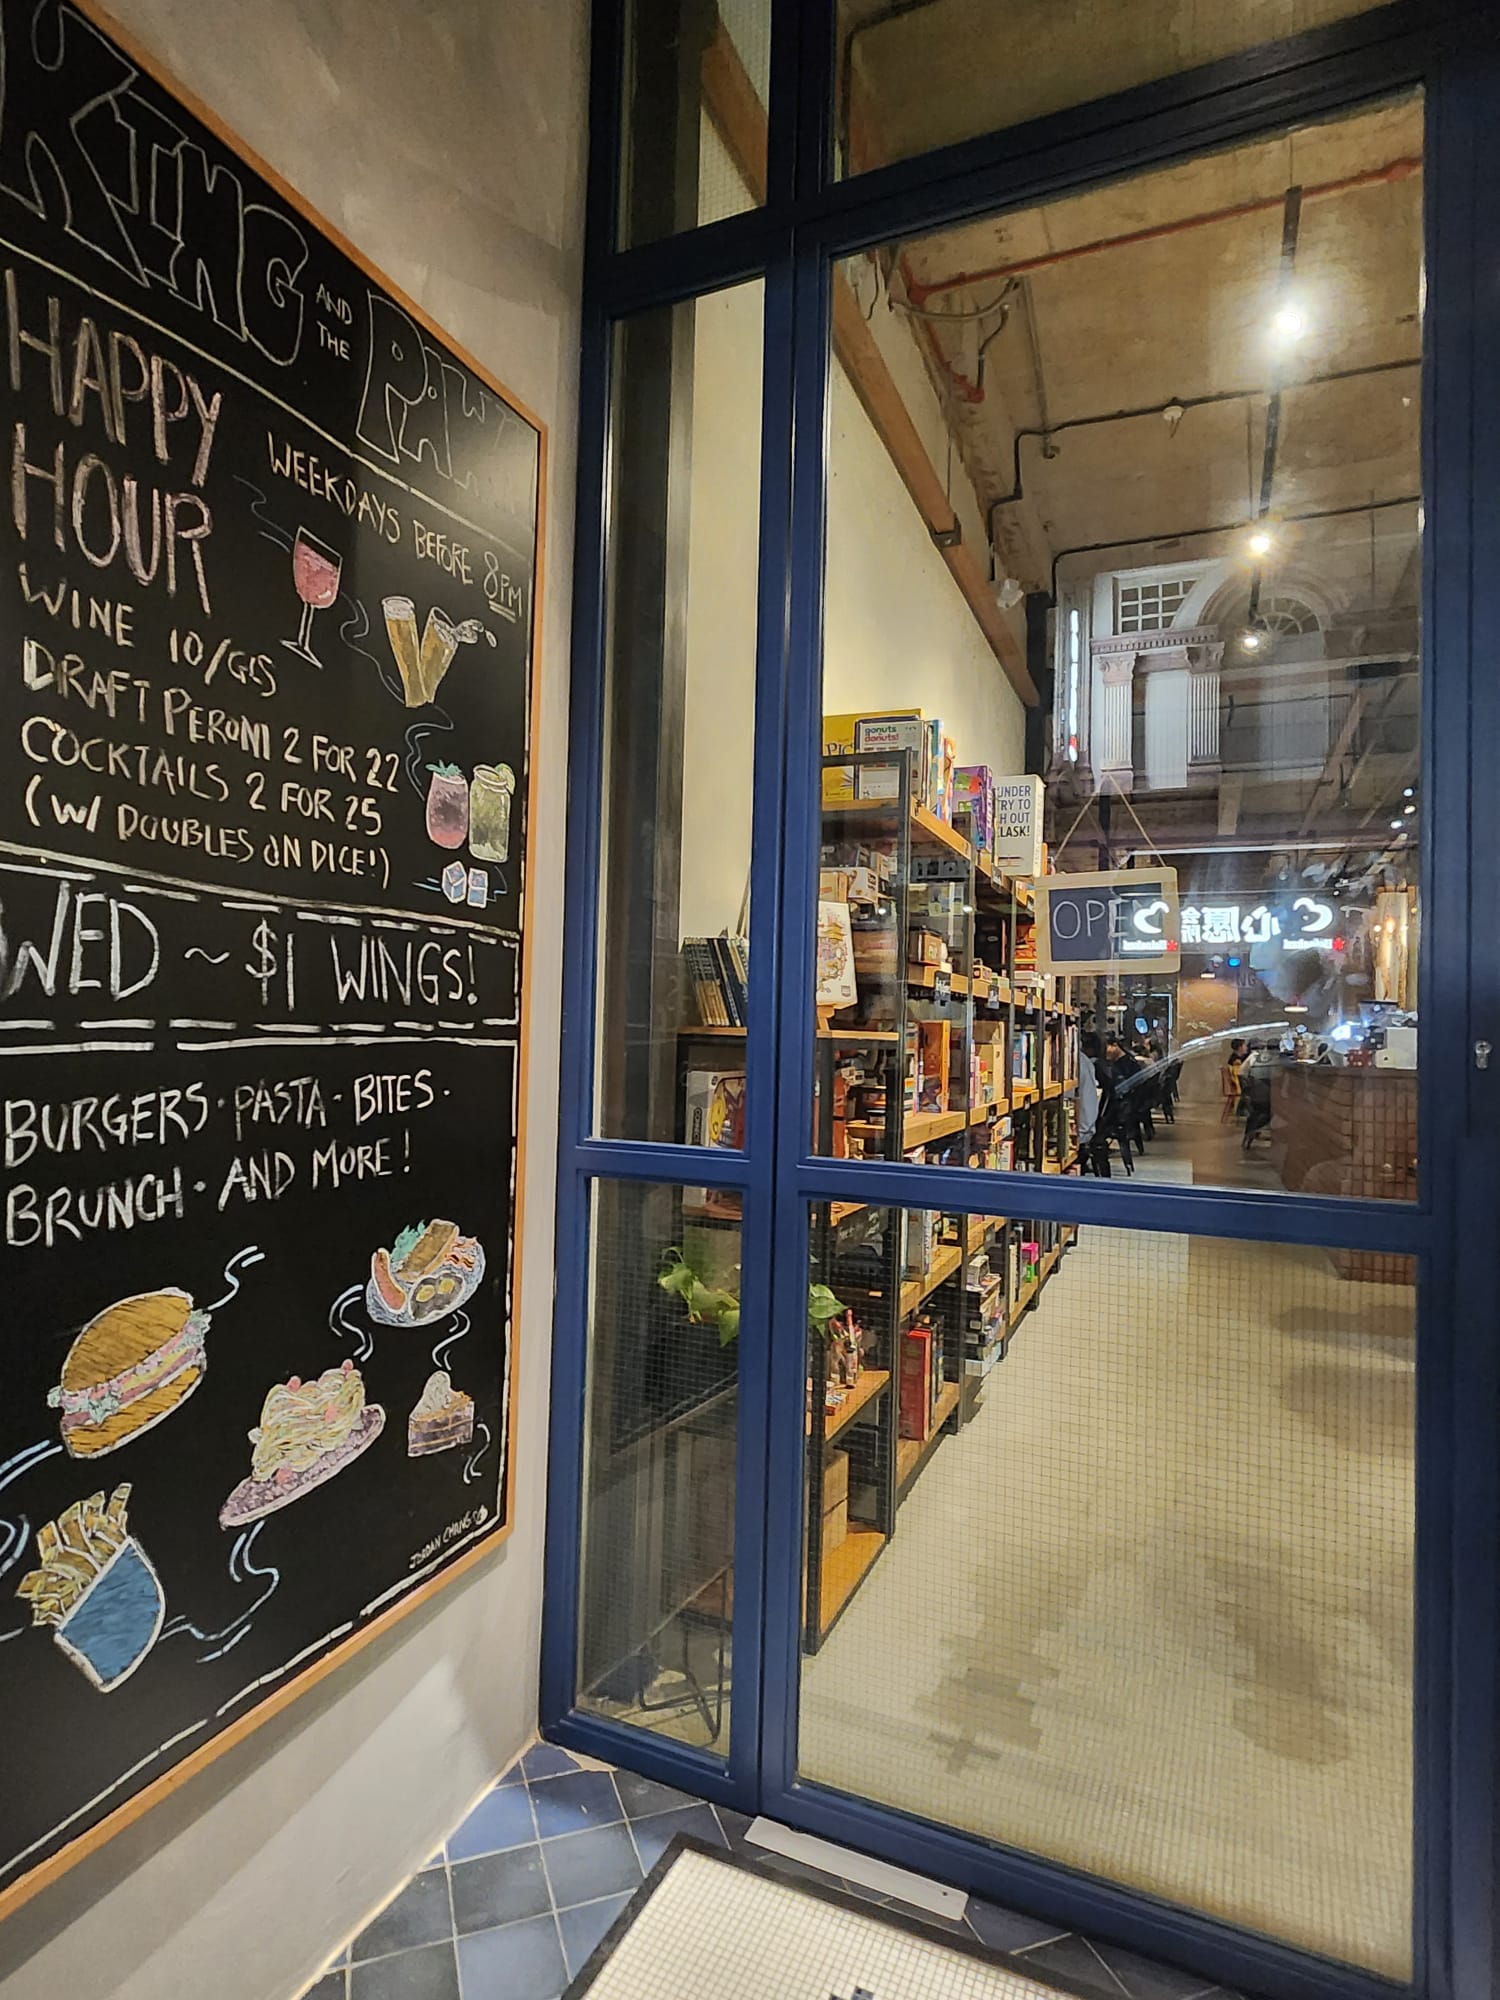 KING AND THE PAWN
HAPPY HOUR
WEEKDAYS BEFORE 8PM
WINE 10/GLS
DRAFT PERONI 2 FOR 22
COCKTAILS 2 FOR 25
(W/ DOUBLES ON DICE!)
WED ~ $1 WINGS!
BURGERS · PASTA · BITES ·
BRUNCH · AND MORE!
JORDAN CHANG
gonuts
donuts!
PIC
UNDER
TRY TO
H OUT
LASK!
OPEN
心愿